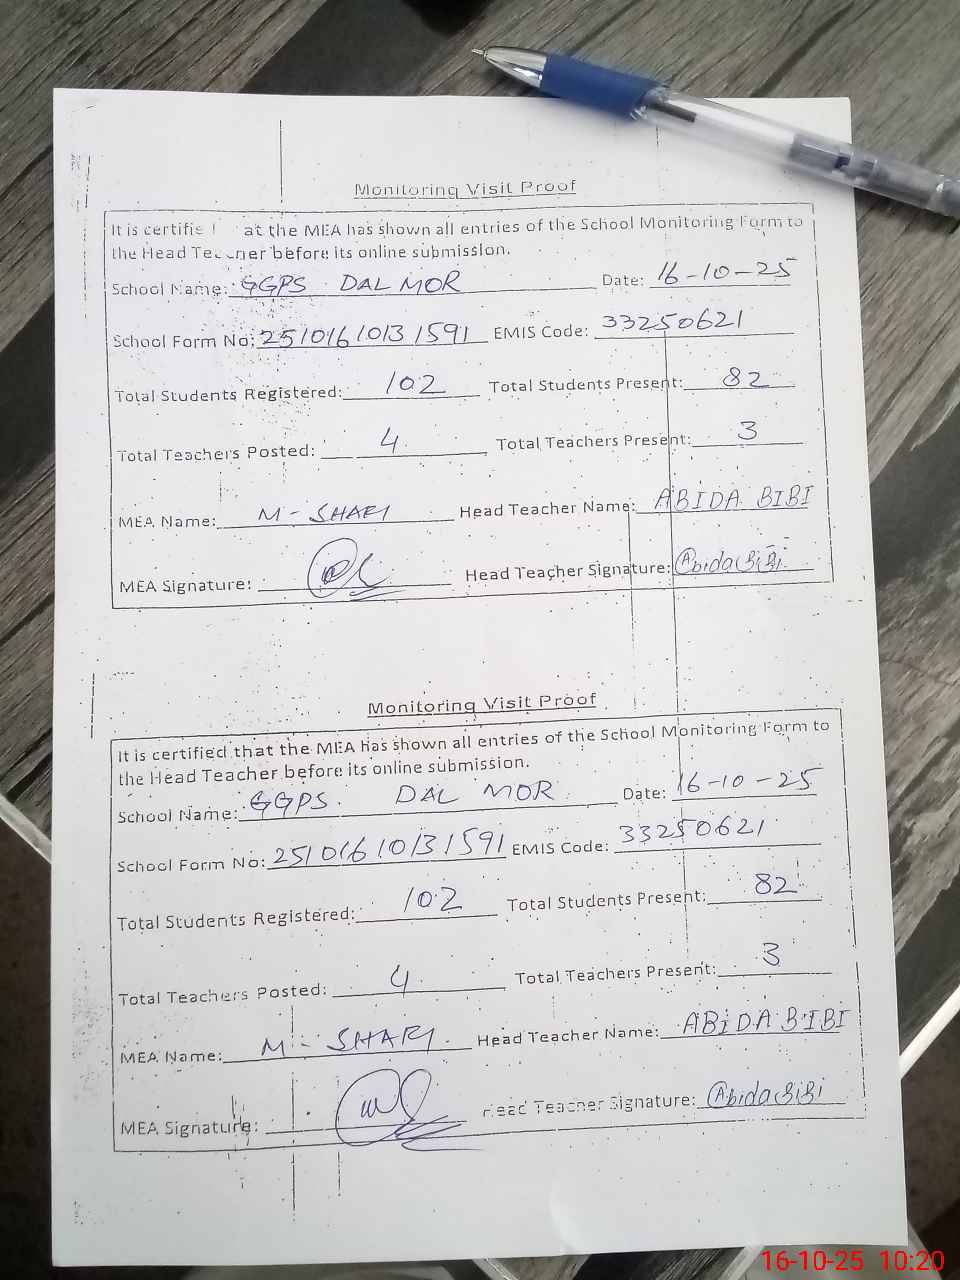 Monitoring Visit Proof
It is certifie at the MEA has shown all entries of the School Monitoring Form to
the Head Te ner before its online submission.
School Name: GGPS DAL MOR Date: 16-10-25
School Form No: 25101610131591 EMIS Code: 33250621
Total Students Registered: 102 Total Students Present: 82
Total Teachers Posted: 4 Total Teachers Present: 3
MEA Name: M- Head Teacher Name: ABIDA BIBI
MEA Signature: Head Teacher Signature: Abida BiBi
Monitoring Visit Proof
It is certified that the MEA has shown all entries of the School Monitoring Form to
the Head Teacher before its online submission.
School Name: GGPS. DAL MOR Date: 16-10-25
School Form No: 25101610131591 EMIS Code: 33250621
Total Students Registered: 102 Total Students Present: 82
Total Teachers Posted: 4 Total Teachers Present: 3
MEA Name: M- Head Teacher Name: ABIDA BIBI
MEA Signature: Head Teacher Signature: Abida BiBi
16-10-25 10:20